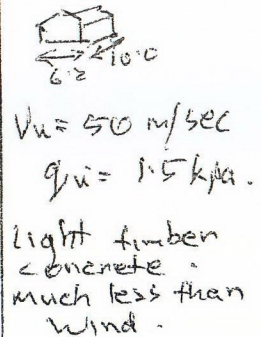 6.2 10.0
Vu = 50 m/sec
qu = 1.5 kpa.
Light timber
concrete.
much less than
wind.